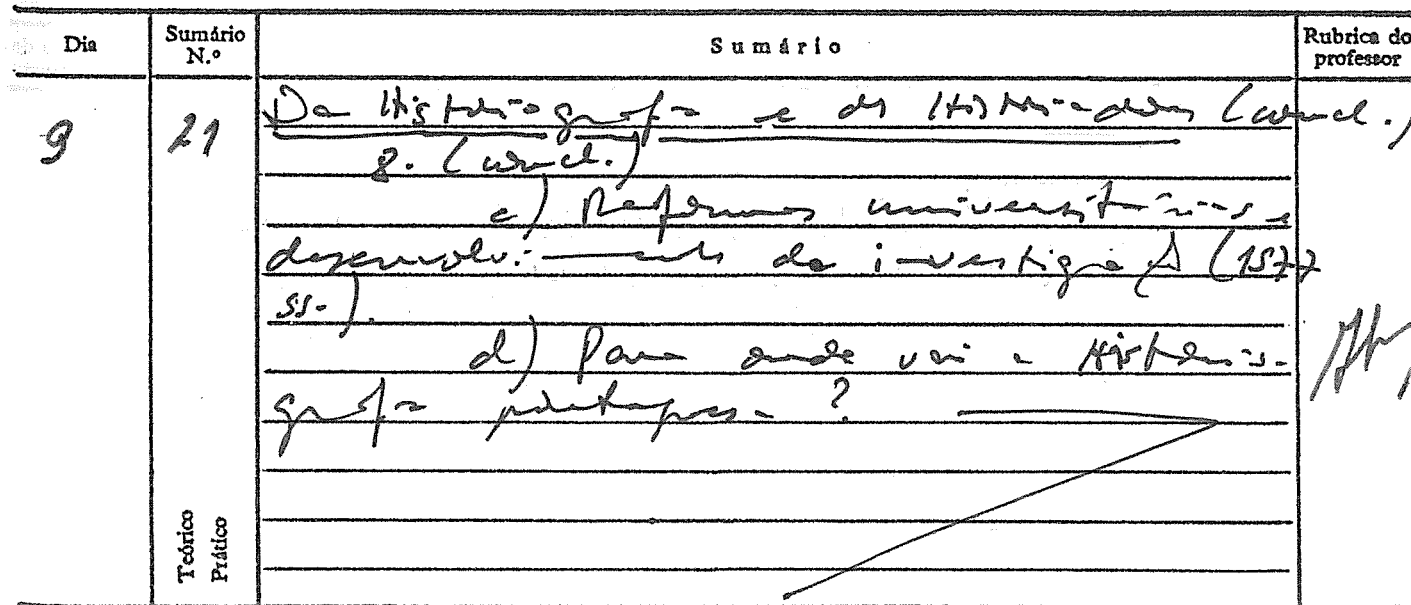 Dia
Sumário N.º
Sumário
Rubrica do professor
9
21
Da Historiografia e dos Historiadores (concl.)
8. (concl.)
c) Reformas universitárias e
desenvolvimento da investigação (1577
ss.).
d) Para onde vai a Historio-
grafia portuguesa?
Teórico
Prático